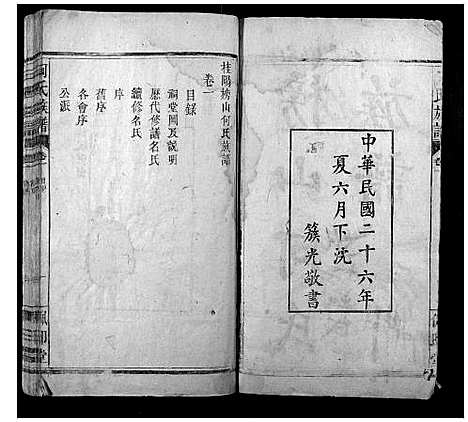 中華民國二十六年
夏六月下浣
簇光敬書
桂陽榜山何氏族譜
卷一
目錄
祠堂圖及説明
歷代修譜名氏
續修名氏
序
舊序
各會序
公派
何氏族譜